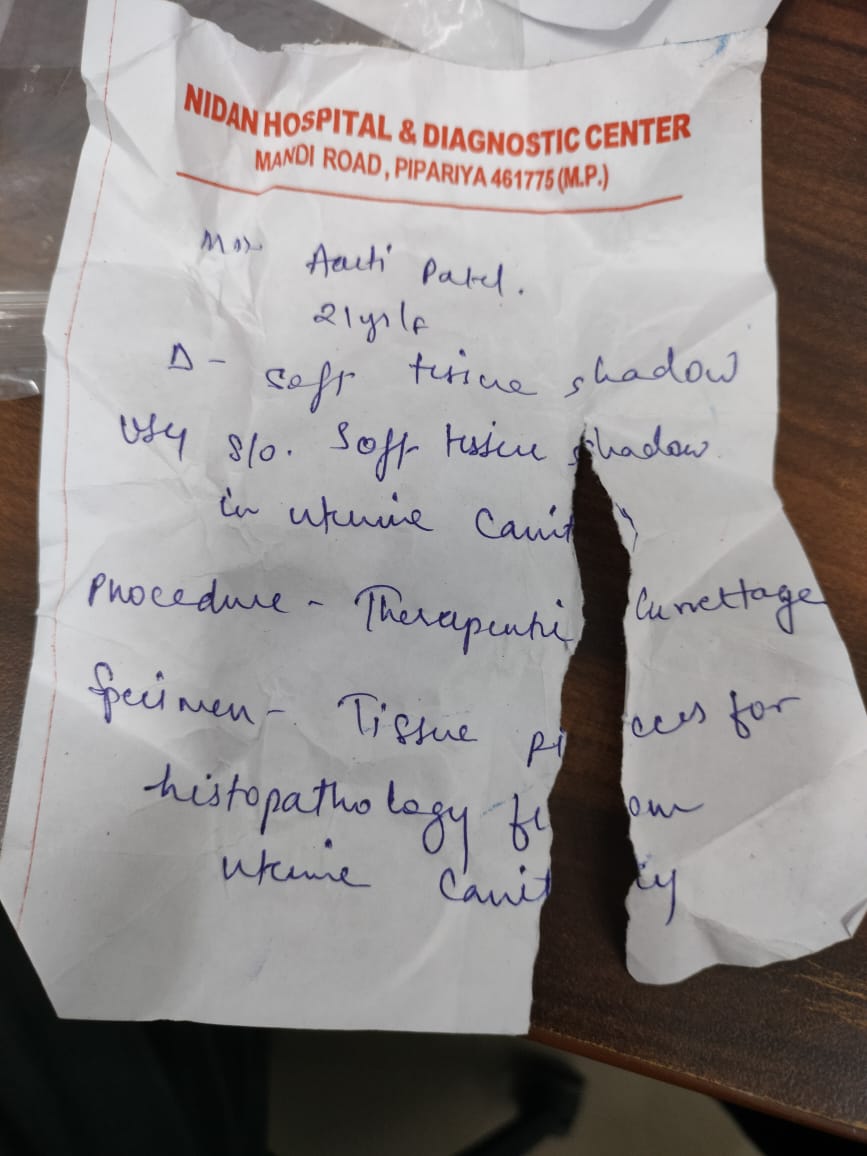 NIDAN HOSPITAL & DIAGNOSTIC CENTER
MANDI ROAD, PIPARIYA 461775 (M.P.)
Mrs Aarti Patel.
21yrs/F
Δ - Soft tissue shadow
USG S/o. Soft tissue shadow
in uterine cavity
Procedure - Therapeutic Currettage
Specimen - Tissue pieces for
histopathology from
uterine cavity